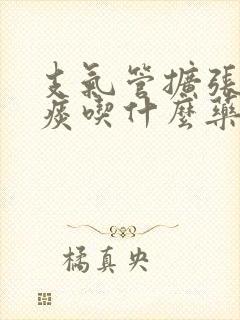 支氣管擴張
痰喫什麼藥
橘真央